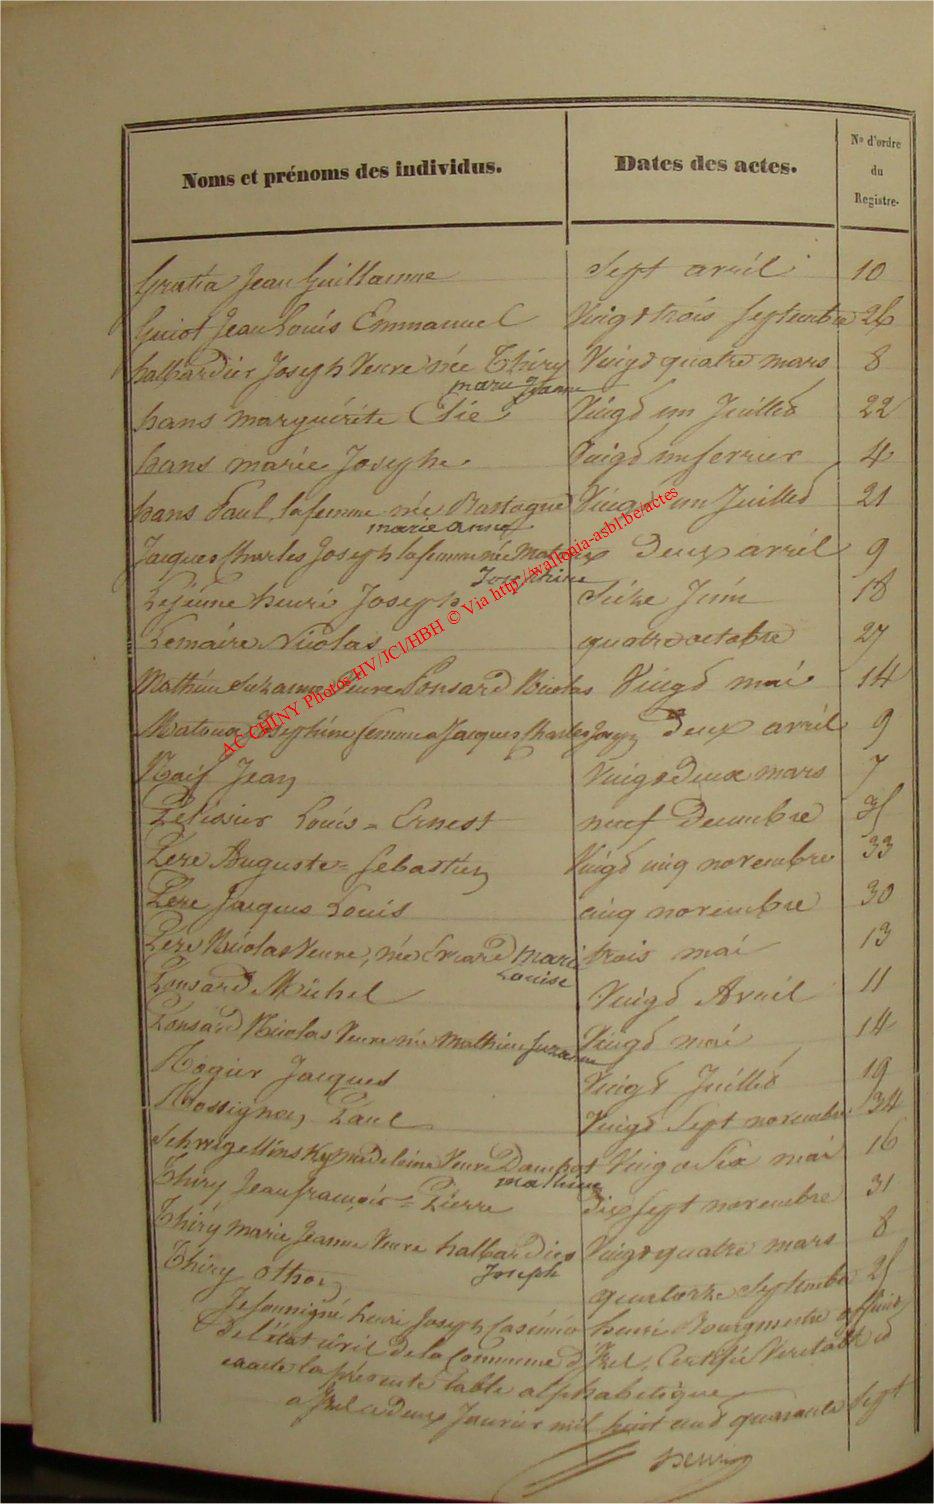 Noms et prénoms des individus. Dates des actes. No d'ordre du Registre.
Gratia Jean Guillaume Sept avril 10
Guiot Jean Louis Emmanuel Vingt trois septembre 26
halbardier Joseph Veuve née Thiry Vingt quatre mars 8
marie Jeanne
hans marguérite Elie Vingt un Juillet 22
hans marie Josephe Vingt un fevrier 4
hans Paul, la femme née Bastogne Vingt un Juillet 21
marie anne
Jacques Charles Joseph la femme née Matoux Deux avril 9
Josephine
Lejeune henri Joseph Seize Juin 18
Lemaire Nicolas quatre octobre 27
Mathieu Suzanne Veuve Ponsard Nicolas Vingt mai 14
Matoux Josephine femme Jacques Charles Joseph deux avril 9
Naif Jean Vingt deux mars 7
Pelissier Louis = Ernest neuf Decembre 35
Pere Auguste = Sebastien Vingt cinq novembre 33
Pere Jacques Louis cinq novembre 30
Pere Nicolas Veuve, née Evrard marie trois mai 13
Louise
Ponsard Michel Vingt Avril 11
Ponsard Nicolas Veuve née Mathieu Suzanne Vingt mai 14
Rogier Jacques Vingt Juillet 19
Rossignon Paul Vingt Sept novembre 34
madeleine Veuve Vingt Six mai 16
Thiry Jean françois = Pierre dix sept novembre 31
Thiry marie Jeanne Veuve halbardier Vingt quatre mars 8
Joseph
Thiry othon quatorze septembre 25
Je soussigné henri Joseph Casimir henri Bourgmestre officier
de l'état civil de la Commune d'Izel, Certifie Veritable et
exacte la présente table alphabetique
a Izel le deux Janvier mil huit cent quarante sept
henri
AC CHINY Photos HV/JCl/HBH © Via http://wallonia-asbl.be/actes